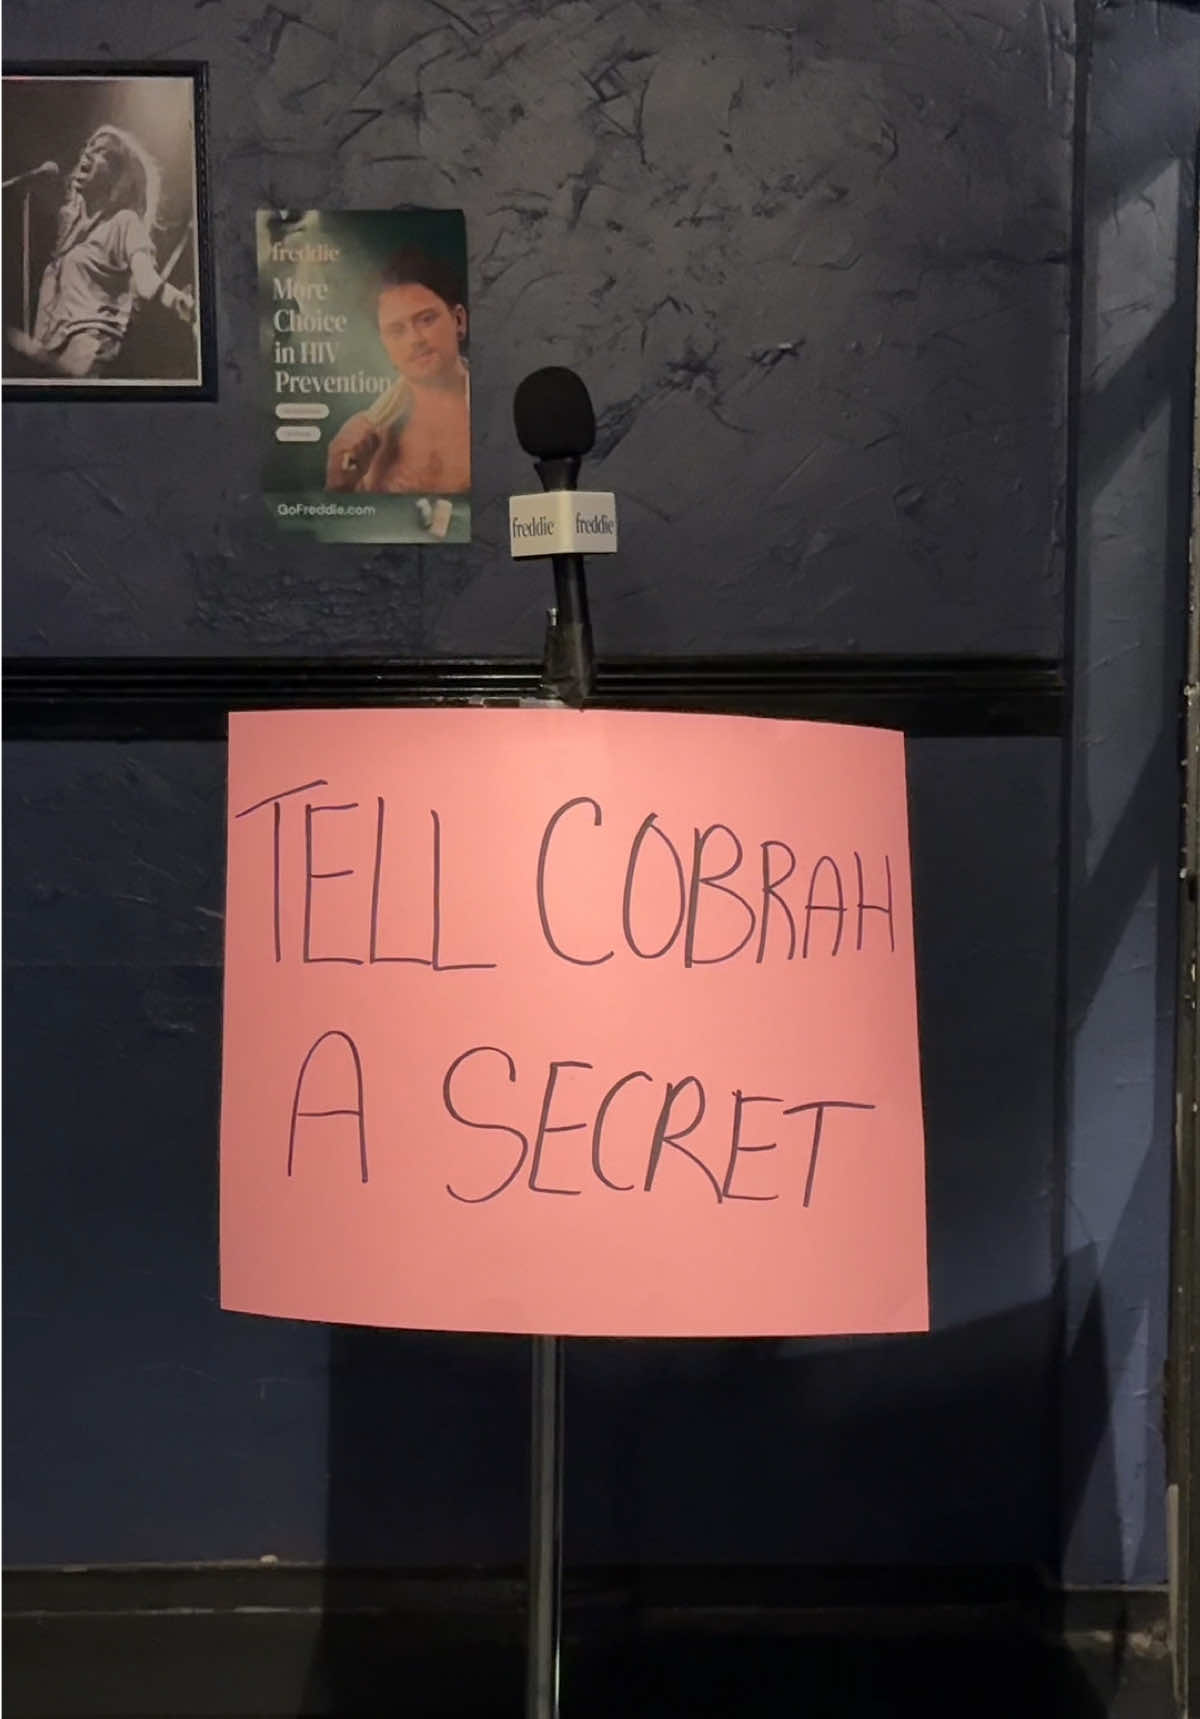 freddie
More
Choice
in HIV
Prevention
GoFreddie.com
freddie freddie
TELL COBRAH
A SECRET